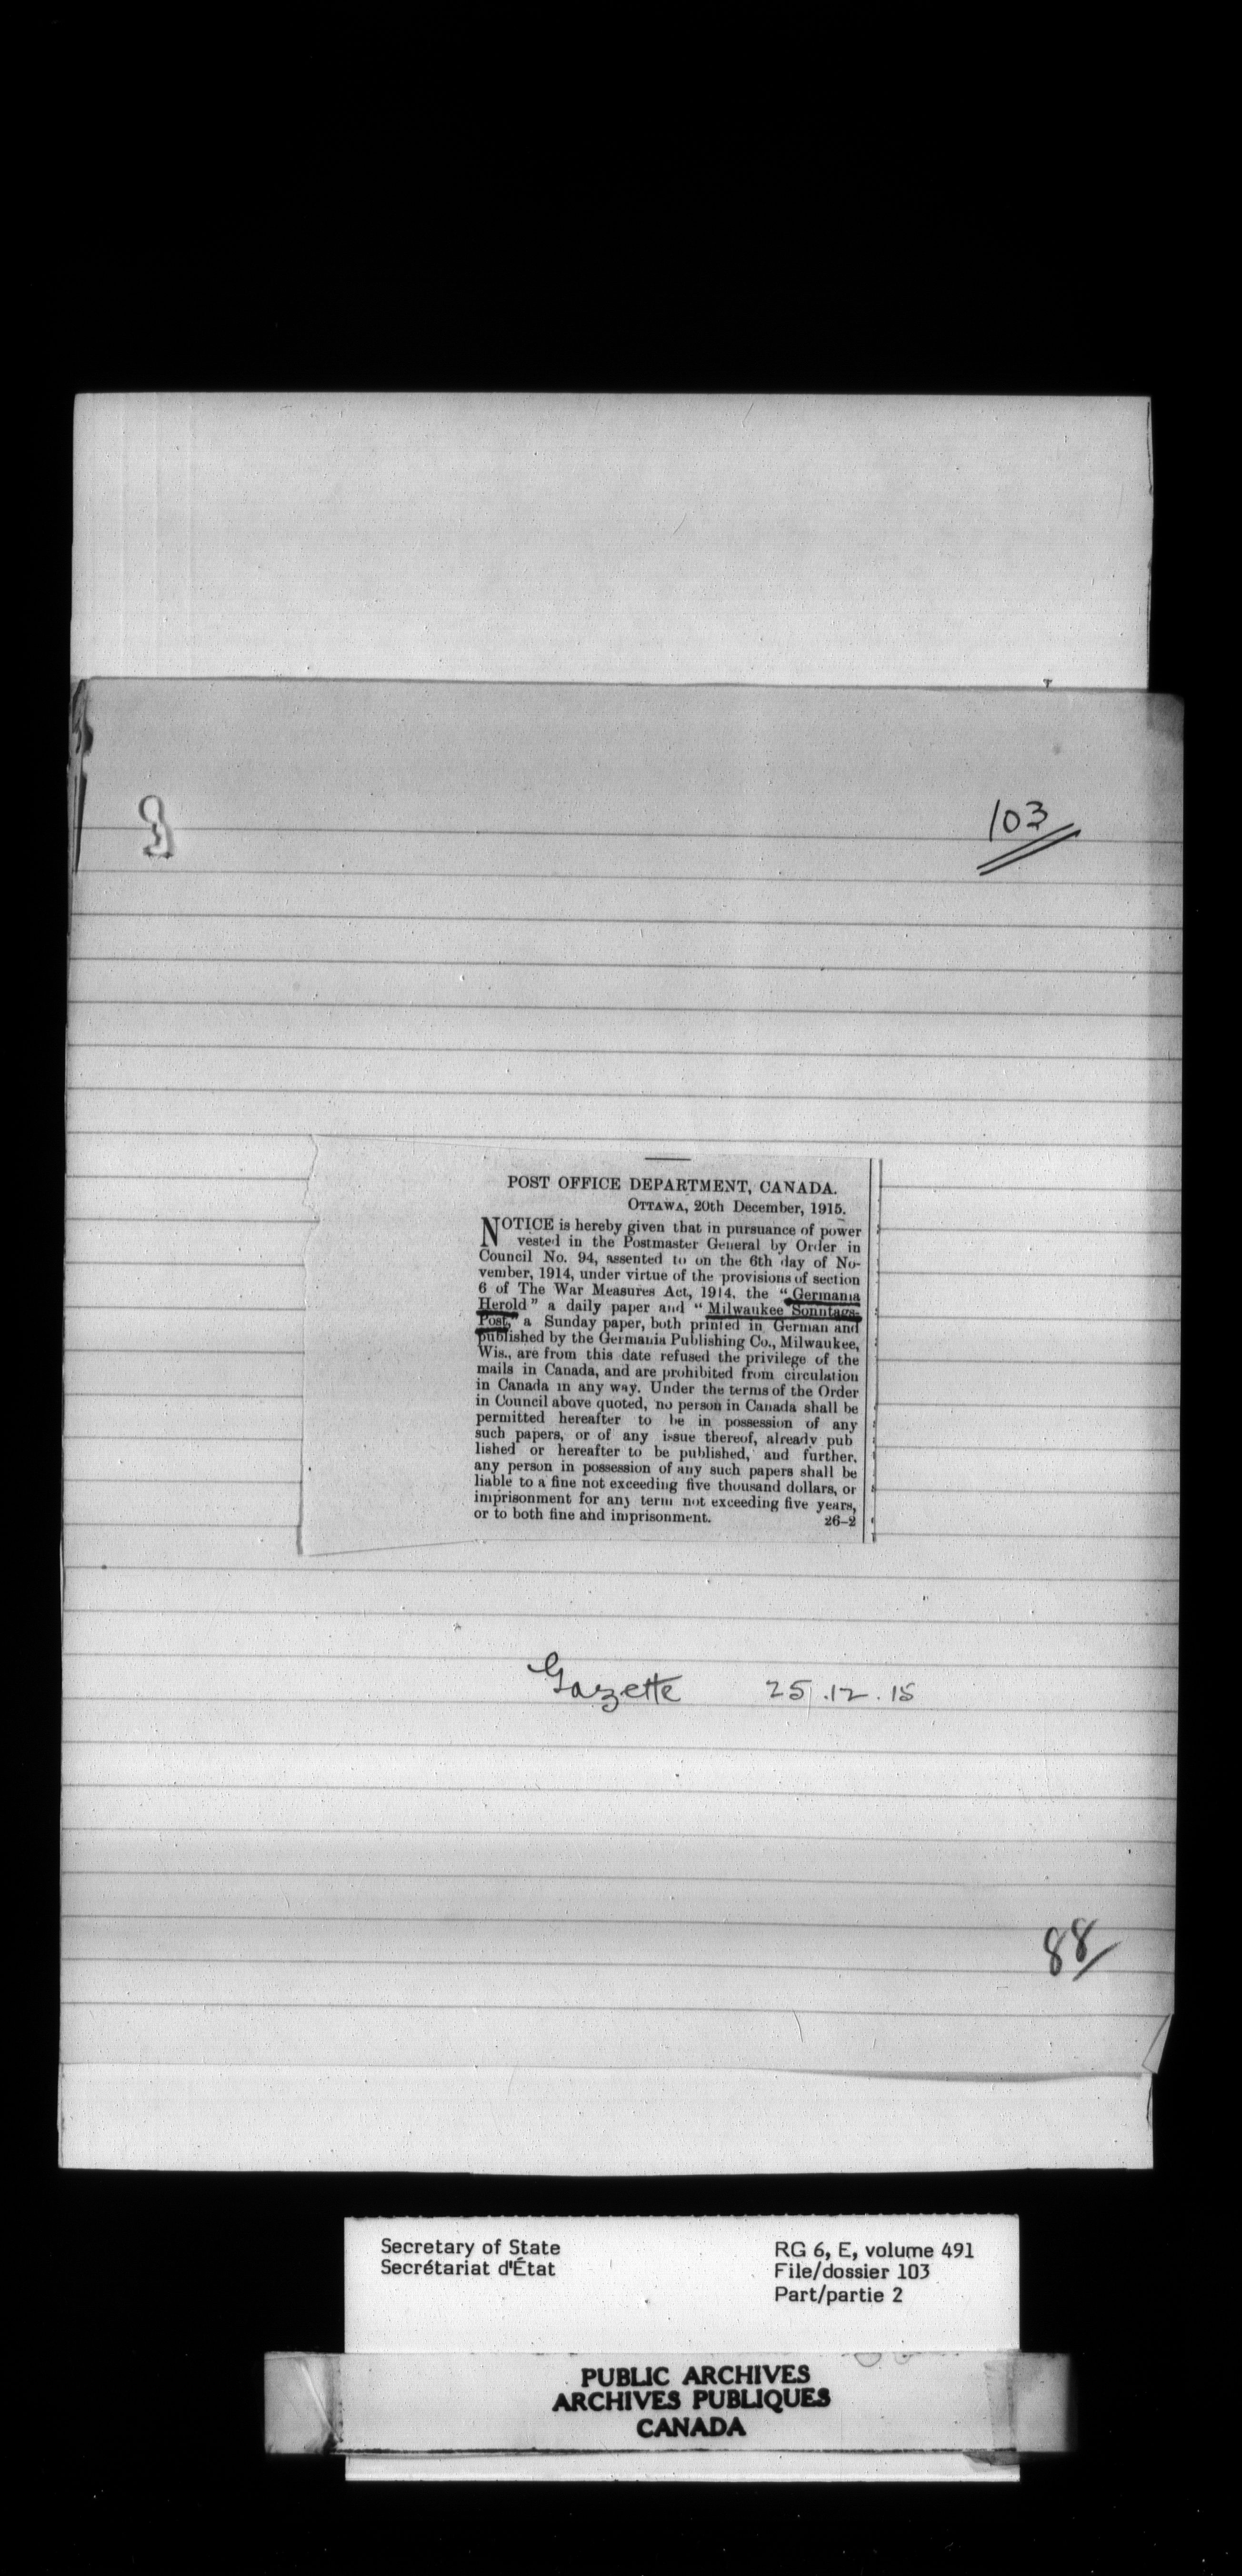 103
POST OFFICE DEPARTMENT, CANADA.
OTTAWA, 20th December, 1915.
NOTICE is hereby given that in pursuance of power
vested in the Postmaster General by Order in
Council No. 94, assented to on the 6th day of No-
vember, 1914, under virtue of the provisions of section
6 of The War Measures Act, 1914, the "Germania
Herold" a daily paper and "Milwaukee Sonntags-
Post," a Sunday paper, both printed in German and
published by the Germania Publishing Co., Milwaukee,
Wis., are from this date refused the privilege of the
mails in Canada, and are prohibited from circulation
in Canada in any way. Under the terms of the Order
in Council above quoted, no person in Canada shall be
permitted hereafter to be in possession of any
such papers, or of any issue thereof, already pub
lished or hereafter to be published, and further,
any person in possession of any such papers shall be
liable to a fine not exceeding five thousand dollars, or
imprisonment for any term not exceeding five years,
or to both fine and imprisonment. 26-2
Gazette 25.12.15
88/
Secretary of State
Secrétariat d'État
RG 6, E, volume 491
File/dossier 103
Part/partie 2
PUBLIC ARCHIVES
ARCHIVES PUBLIQUES
CANADA